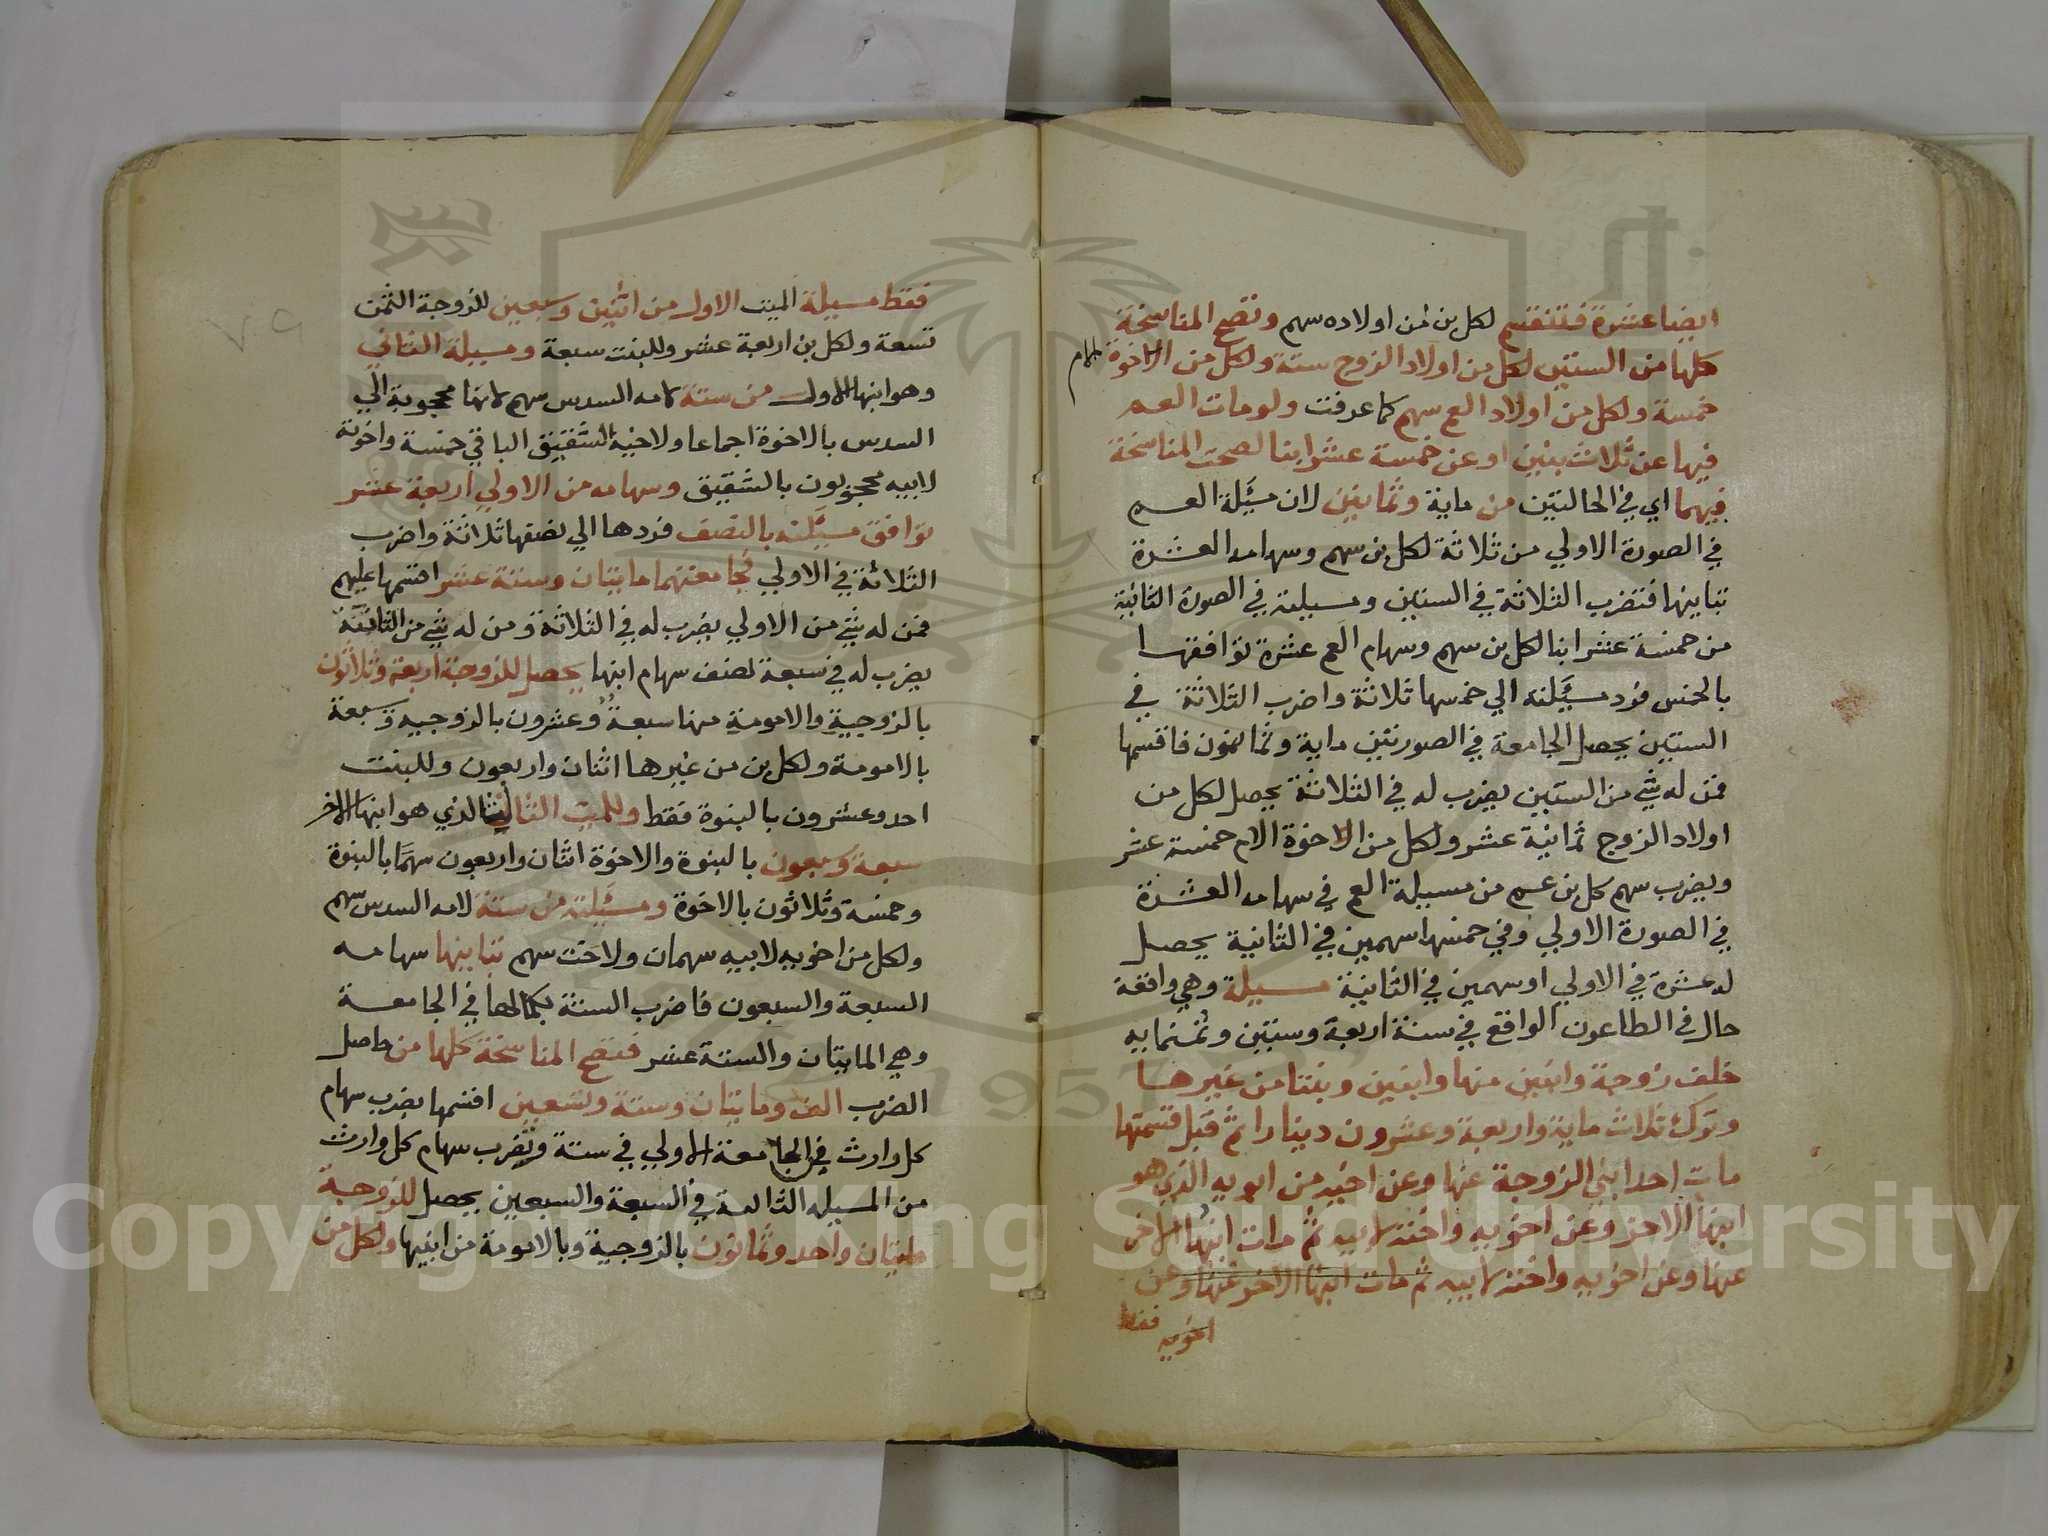 ايضا عشرة فتنقسم لكل بن من اولاده سهم وتصح المناسخة
كلها من الستين لكل من اولاد الزوج ستة ولكل من الاخوة للام
خمسة ولكل من اولاد العم سهم كما عرفت ولومات العم
فيها عن ثلاث بنين او عن خمسة عشر ابنا لصحت المناسخة
فيهما اي في الحالتين من ماية وثمانين لان مسئلة العم
في الصورة الاولي من ثلاثة لكل بن سهم وسهامه العشرة
تباينها فتضرب الثلاثة في الستين ومسيلته في الصورة الثانية
من خمسة عشر ابنا لكل بن سهم وسهام العم عشرة توافقها
بالخمس فرد مسيلته الي خمسها ثلاثة واضرب الثلاثة في
الستين يحصل الجامعة في الصورتين ماية وثمانون فاقسمها
فمن له شي من الستين يضرب له في الثلاثة يحصل لكل من
اولاد الزوج ثمانية عشر ولكل من الاخوة الام خمسة عشر
ويضرب سهم كل بن عم من مسيلة العم في سهامه العشرة
في الصورة الاولي وفي خمسها سهمين في الثانية يحصل
له عشرة في الاولي او سهمين في الثانية مسيلة وهي واقعة
حال في الطاعون الواقع في سنة اربعة وستين وثمنمايه
خلف زوجة وابنين منها وابنين وبنتا من غيرها
وترك ثلاث ماية واربعة وعشرون دينارا ثم قبل قسمتها
مات احد ابني الزوجة عنها وعن اخيه من ابويه الذي هو
ابنها الاخر وعن اخويه واخته لابيه ثم مات ابنها الاخر
عنها وعن اخويه واخته لابيه ثم مات ابنها الاخر عنها وعن
اخويه فقط
فقط مسيلة الميت الاول من اثنين وسبعين للزوجة الثمن
تسعة ولكل بن اربعة عشر وللبنت سبعة ومسيلة الثاني
وهو ابنها الاول من ستة لامه السدس سهم لانها محجوبة الي
السدس بالاخوة اجماعا ولاخيه الشقيق الباقي خمسة واخوته
لابيه محجوبون بالشقيق وسهامه من الاولي اربعة عشر
توافق مسيلته بالنصف فردها الي نصفها ثلاثة واضرب
الثلاثة في الاولي فجامعتهما مايتان وستة عشر اقسمها عليهم
فمن له شي من الاولي يضرب له في الثلاثة ومن له شي من الثانية
يضرب له في سبعة نصف سهام ابنها يحصل للزوجة اربعة وثلاثون
بالزوجية والامومة منها سبعة وعشرون بالزوجيه وسبعة
بالامومة ولكل بن من غيرها اثنان واربعون وللبنت
احد وعشرون بالبنوة فقط وللميت الثالث الذي هو ابنها الاخر
سبعة وسبعون بالبنوة والاخوة اثنان واربعون سهما بالبنوة
وخمسة وثلاثون بالاخوة ومسيلته من ستة لامه السدس سهم
ولكل من اخويه لابيه سهمان ولاخت سهم تباينها سهامه
السبعة والسبعون فاضرب الستة بكمالها في الجامعة
وهي المايتان والستة عشر فتصح المناسخة كلها من حاصل
الضرب الف ومايتان وستة وتسعين اقسمها بضرب سهام
كل وارث في الجامعة الاولي في ستة وتضرب سهام كل وارث
من المسيله الثالثة في السبعة والسبعين يحصل للزوجة
مايتان واحد وثمانون بالزوجية وبالامومة من ابنيها ولكل من
Copyright © King Saud University
1957